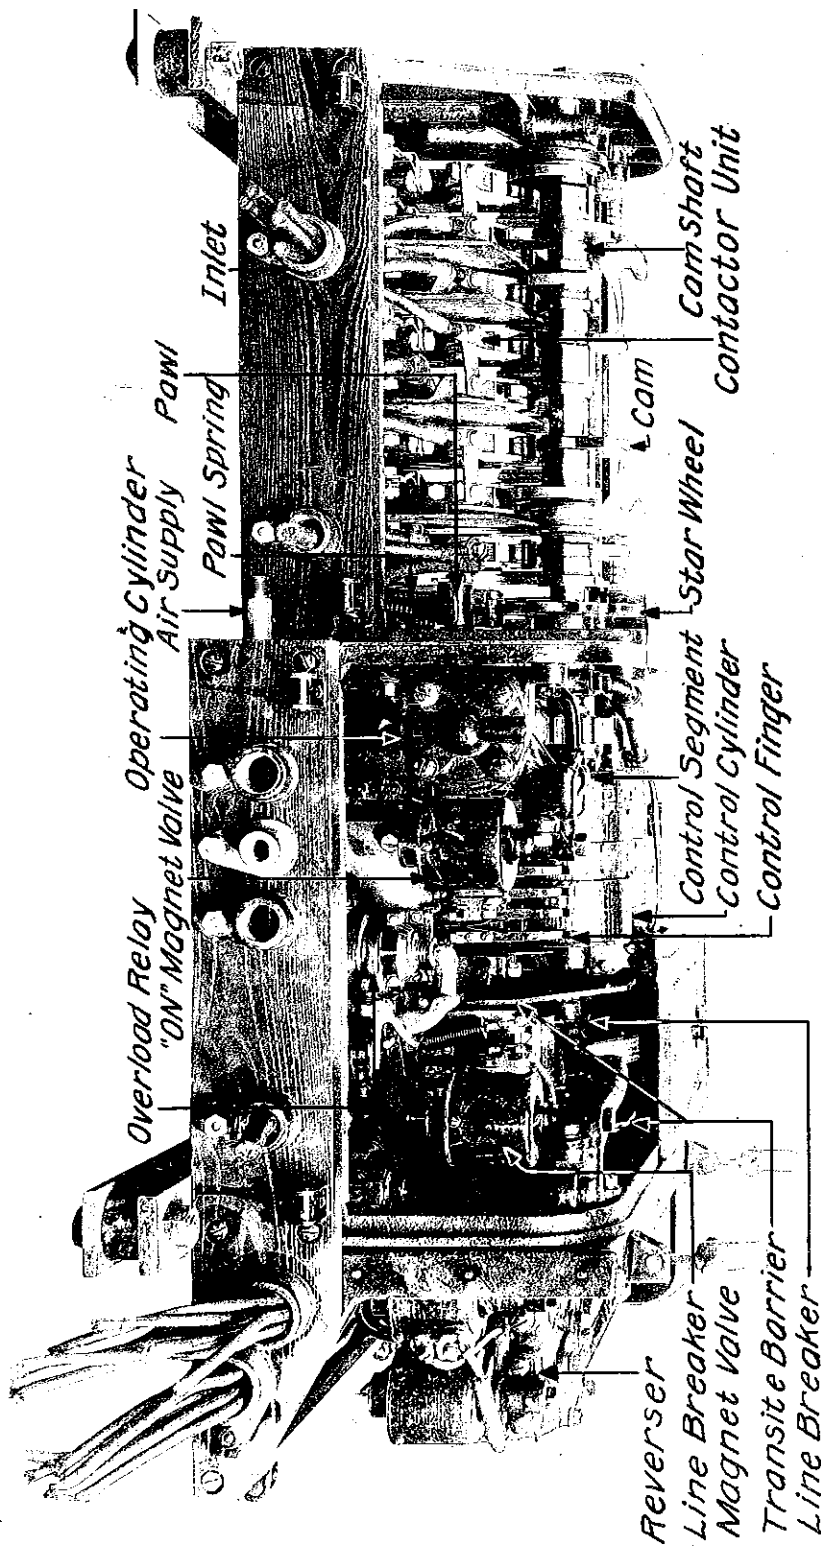 Overload Relay
"ON" Magnet Valve
Operating Cylinder
Air Supply
Pawl Spring
Pawl
Inlet
Reverser
Line Breaker
Magnet Valve
Transite Barrier
Line Breaker
Control Segment
Control Cylinder
Control Finger
Star Wheel
Cam
Cam Shaft
Contactor Unit